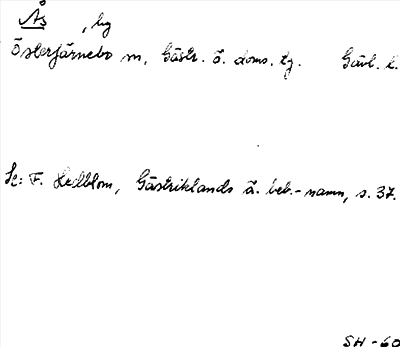 Ås, by
Österfärnebo sn, Gästr. ö. doms. tg. Gävl. l.
Se: F. Hedblom, Gästriklands ä. beb.-namn, s. 37.
SH-60